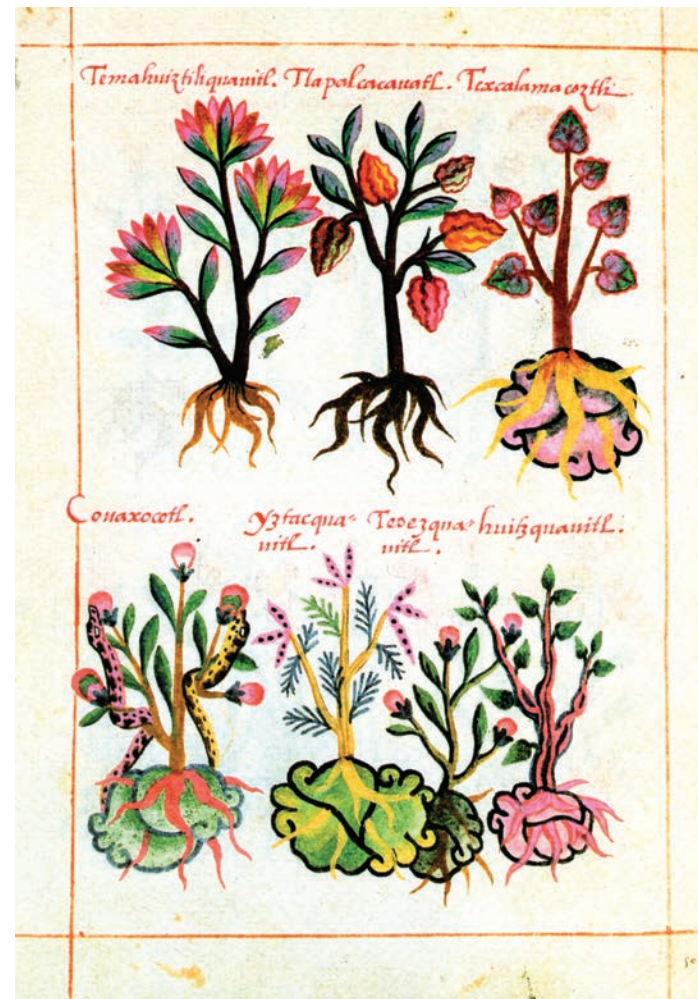 Temahuiztiliquauitl. Tlapalcacauatl. Texcalamacoztli.
Couaxocotl. Yztacqua= Teoezqua= huitzquauitl.
uitl. uitl.